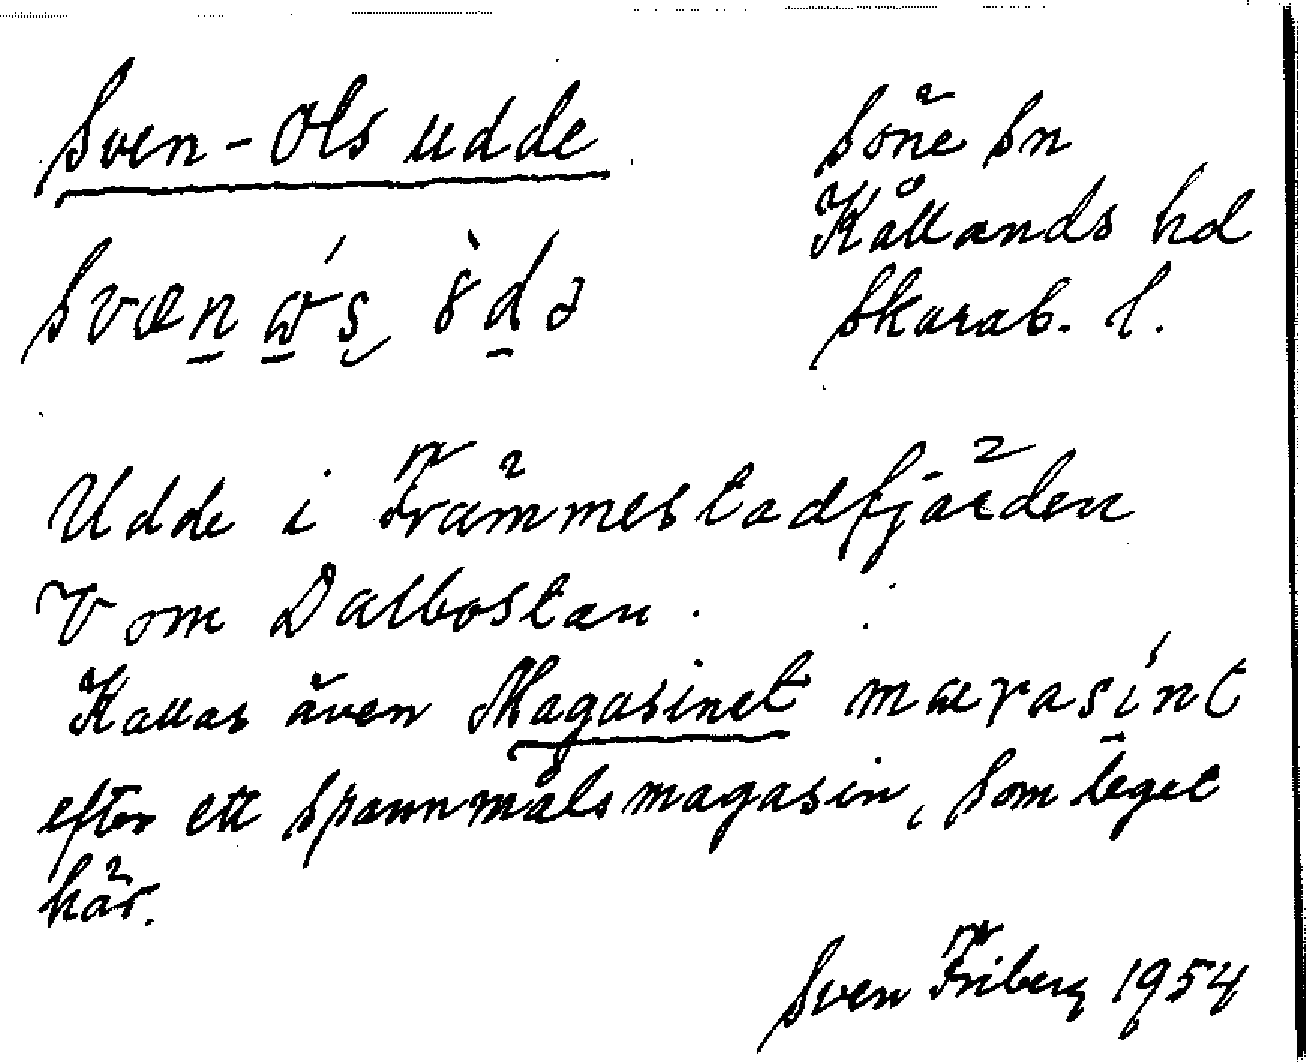 Sven-Ols udde
Söne sn
Kållands hd
Skarab. l.
Udde i Främmestadfjärden
V om Dalbostan.
Kallas även Magasinet
efter ett spannmålsmagasin, som legat
här.
Sven Friberg 1954